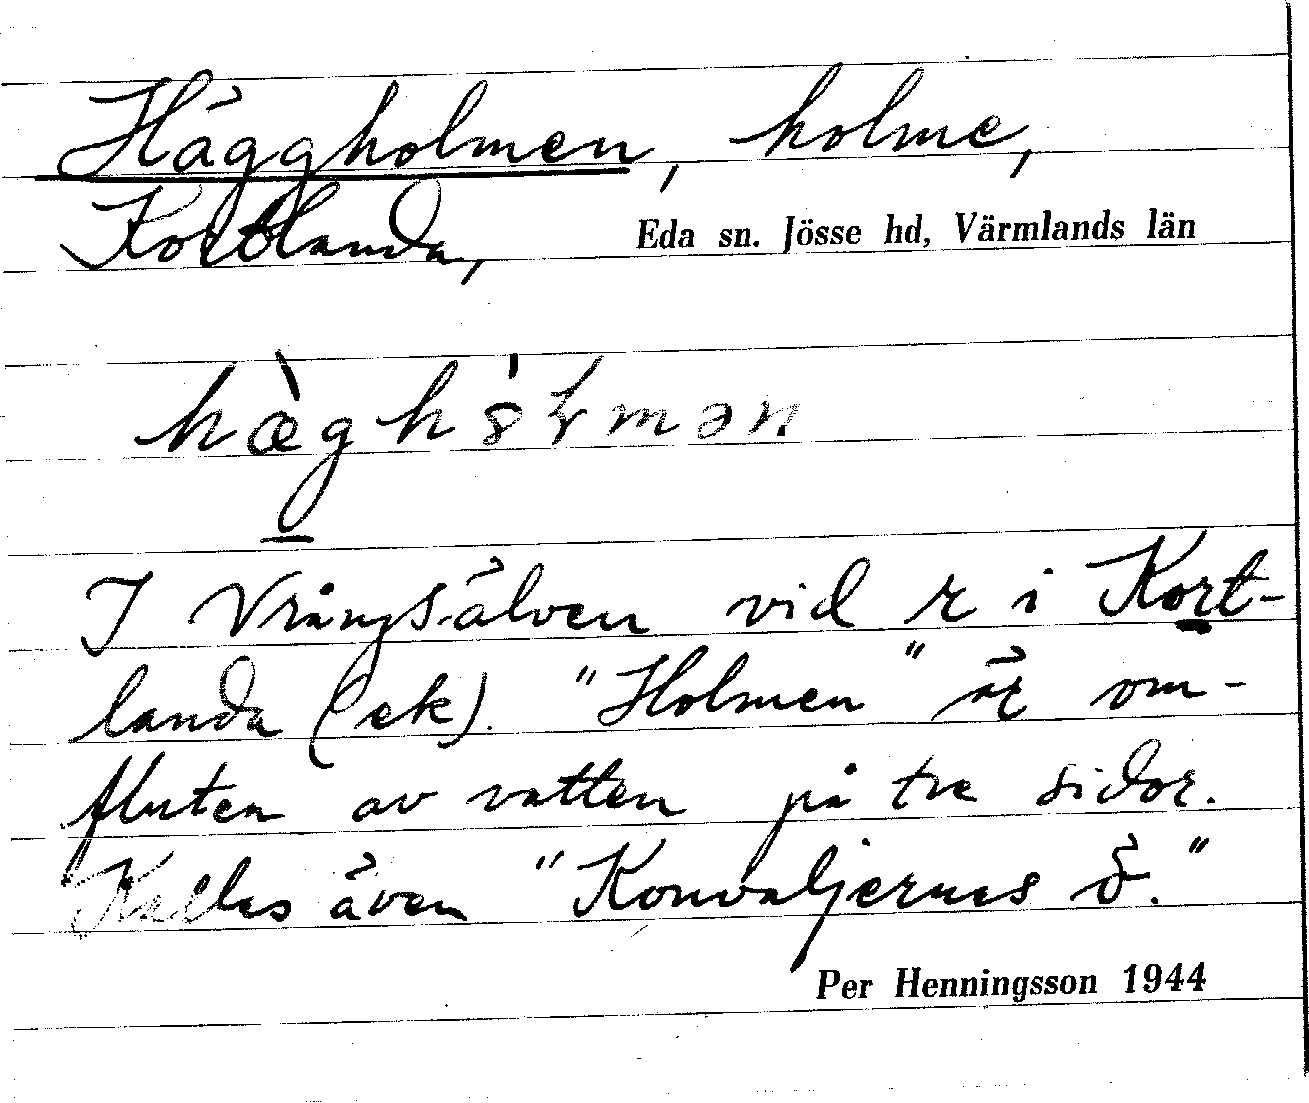 Häggholmen, holme,
Kortlanda, Eda sn. Jösse hd, Värmlands län
hæ̀ghòʽɫmən
I Vrångsälven vid r i Kort-
landa (ek). "Holmen" är om-
fluten av vatten på tre sidor.
Kallas även "Konvaljernes ö."
Per Henningsson 1944